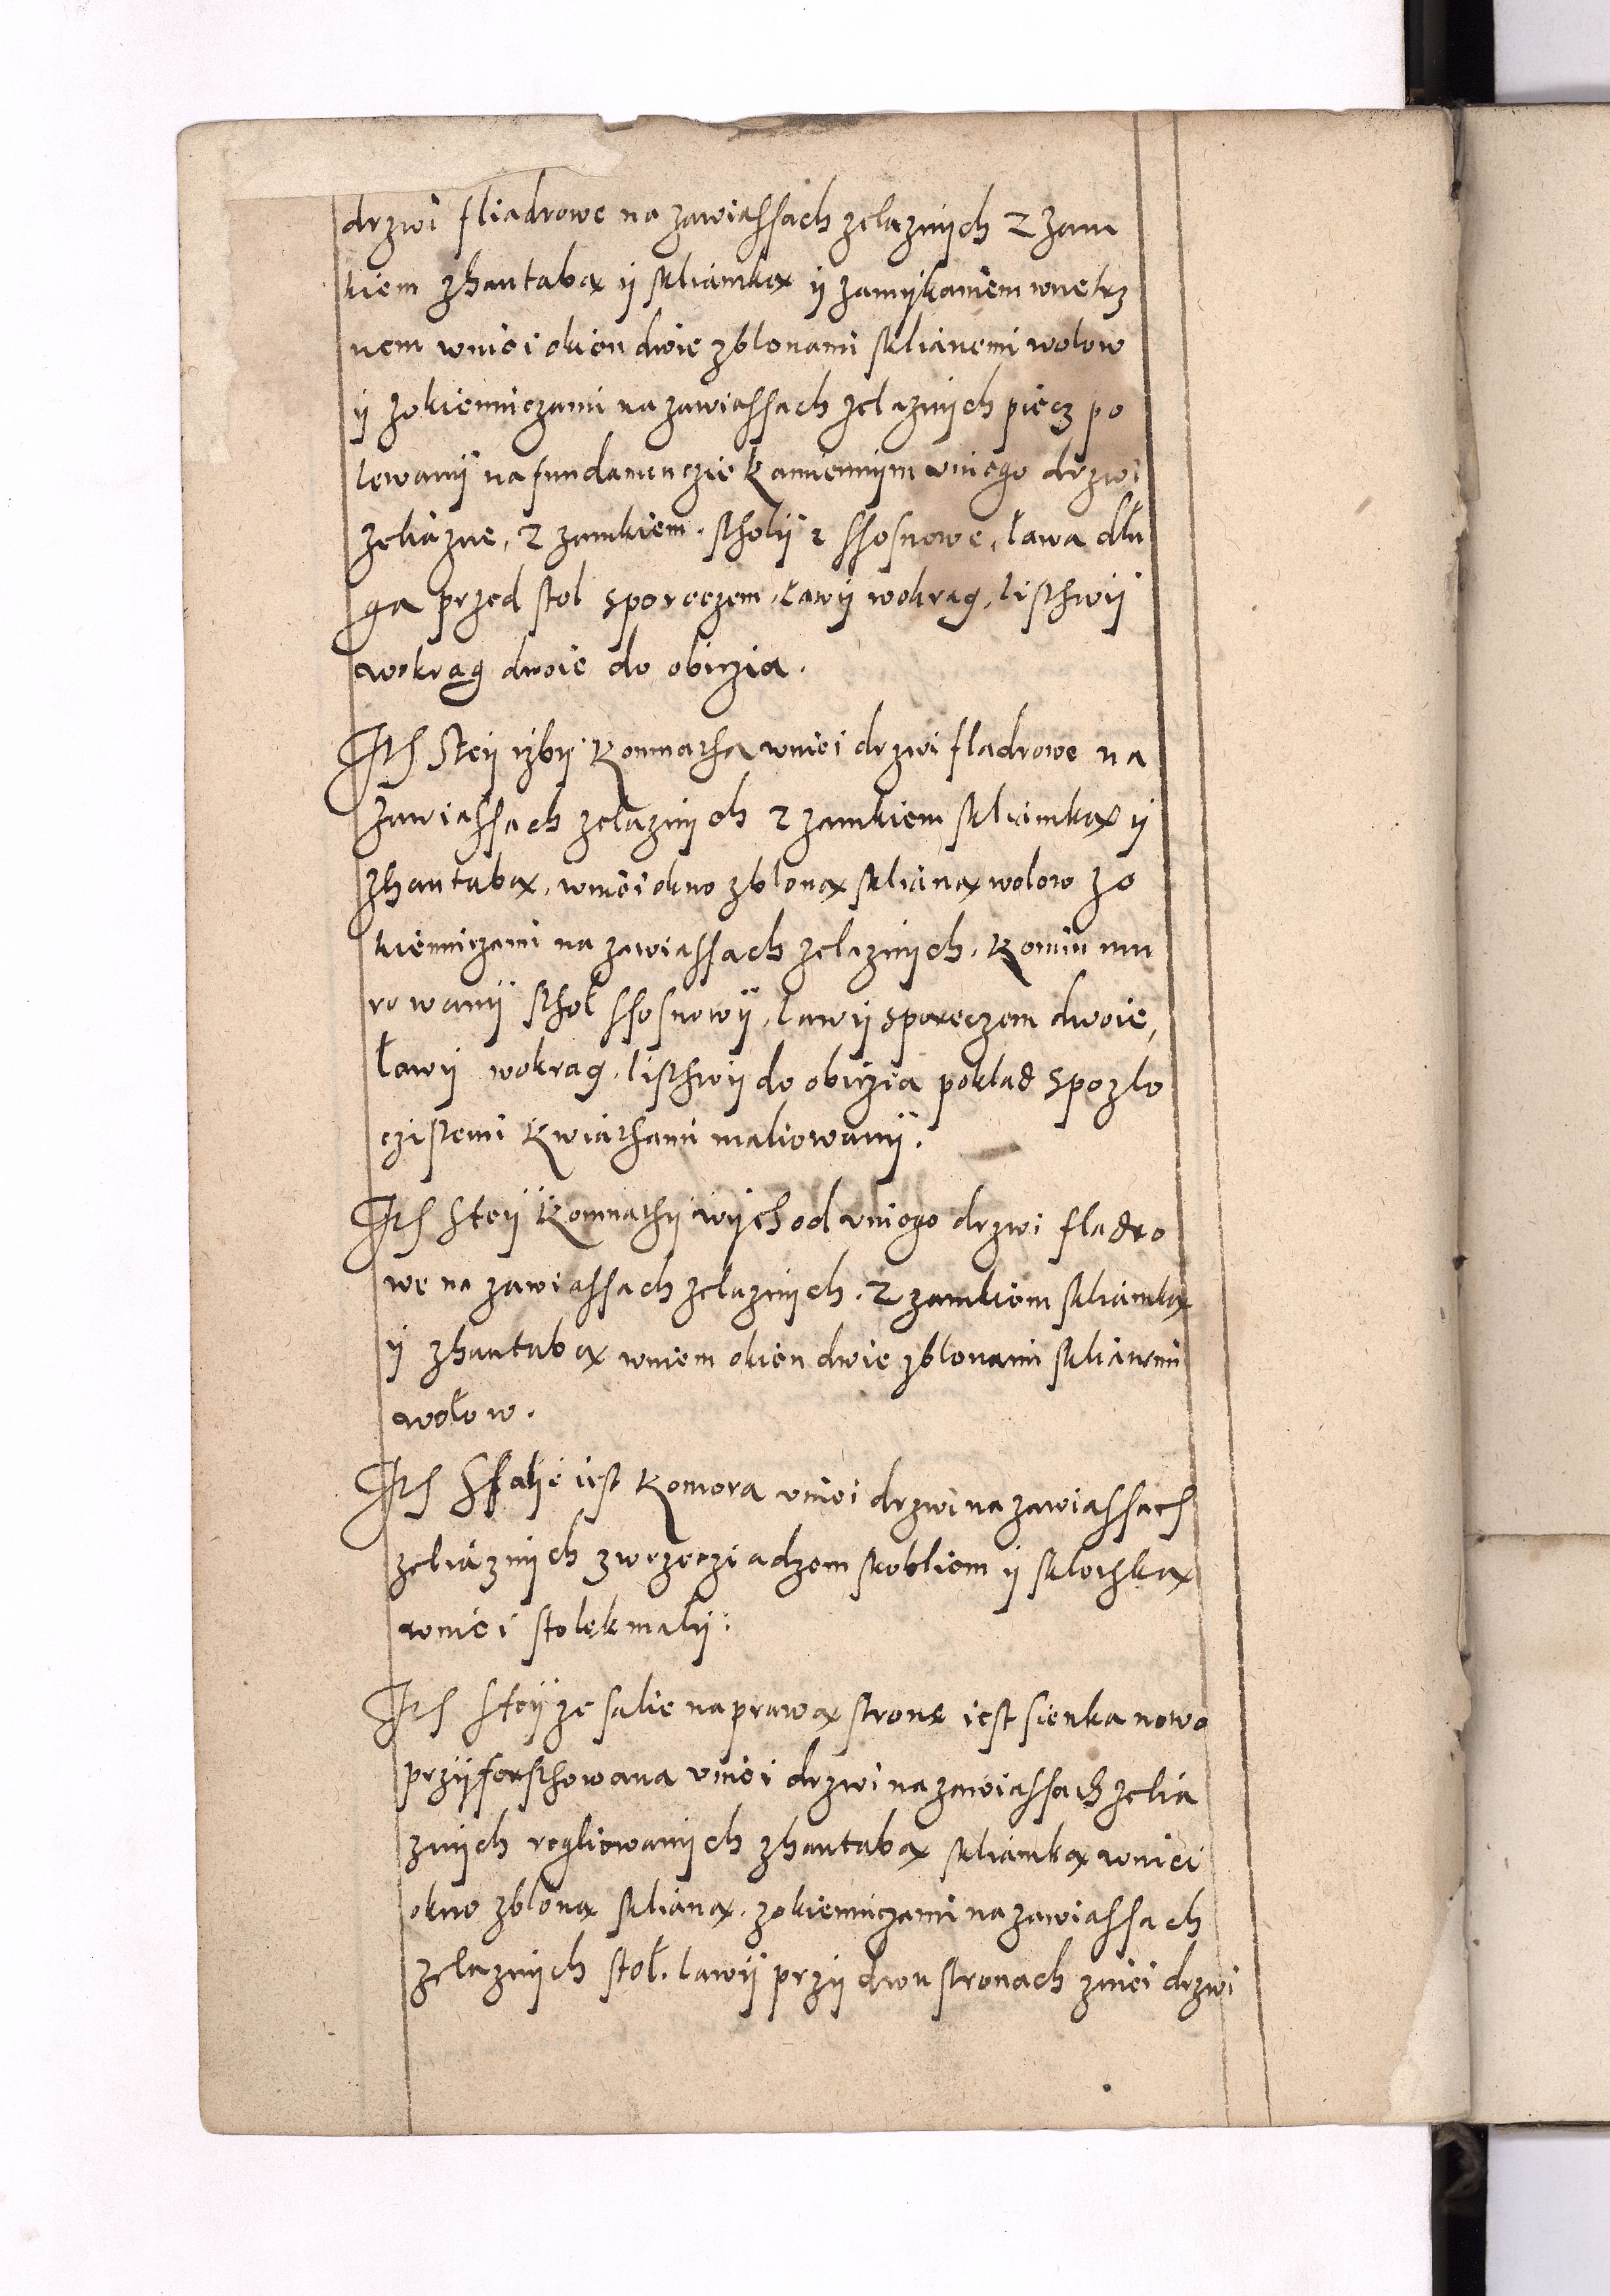 drzwi fliadrowe na zawiassach zelaznych z zam
kiem zhantabą ÿ kliamką ÿ zamÿkaniem wnetrz
nem wniei okien dwie zblonami skliánemi wolow
ÿ zokienniczami na zawiassach zelaznÿch piecz po
lewanÿ na fundamenczie kamiennÿm vniego drzwi
zeliázne, z zamkiem. stholÿ 2 ssosnowe, ława dłu
ga przed stol sporeczem, ławÿ wokrag, listhwÿ
wokrag dwoie do obiczia.
Ith Steÿ izbÿ Komnatha wniei drzwi fladrowe na
zawiassach zelaznÿch z zamkiem kliamką ÿ
zhantabą, wniei okno zbloną sklianą wolow zo
kienniczami na zawiassach zelaznÿch. Komin mu
rowanÿ sthoł ssosnowÿ, lawÿ sporeczem dwoie,
ławÿ wokrag, listhwÿ do obiczia poklad spozlo
czistemi Kwiathami maliowanÿ.
Ith steÿ Komnathÿ wÿchod vniego drzwi fladro
we na zawiassach zelaznÿch. z zamkiem kliamką
ÿ zhantabą wniem okien dwie zblonami skliánmi
wołow.
Ith Ssalie iest Komora vniei drzwi na zawiassach
zeliáznÿch zwrzecziadzem skobliem ÿ klothką
wniei stolek malÿ.
Ith steÿ ze salie na prawą strone iest sienka nowo
przÿforsthowana vniei drzwi na zawiassach zelia
znÿch regliowanÿch zhantabą kliamką wniei
okno zbloną sklianą. zokienniczami na zawiassach
zelaznÿch stoł. lawÿ przÿ dwu stronach zniei drzwi